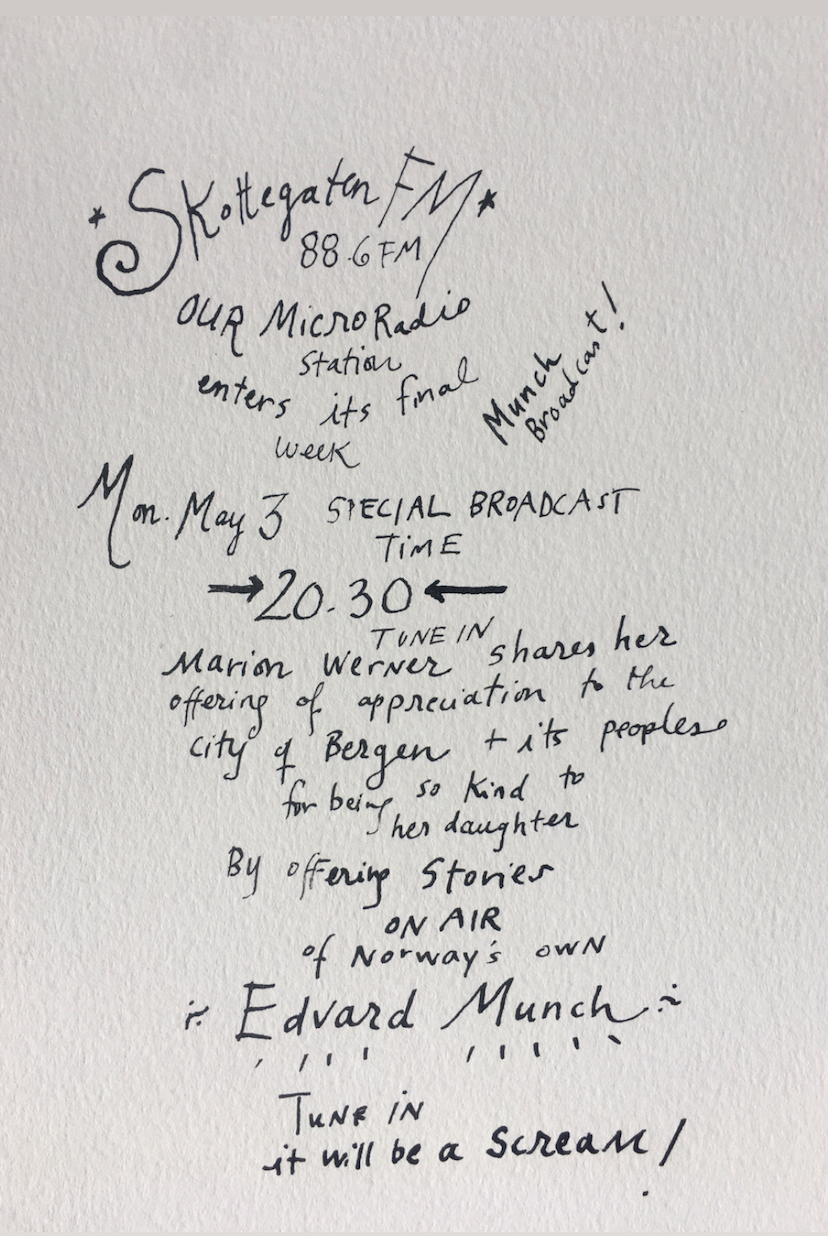 Skottegaten FM
88.6 FM
OUR MicroRadio
Station
enters its final
week
Munch
Broadcast!
Mon. May 3 SPECIAL BROADCAST
TIME
→20.30←
TUNE IN
Marion Werner shares her
offering of appreciation to the
city of Bergen + its peoples
for being so kind to
her daughter
By offering Stories
ON AIR
of Norway's OWN
Edvard Munch
TUNE IN
it will be a Scream!